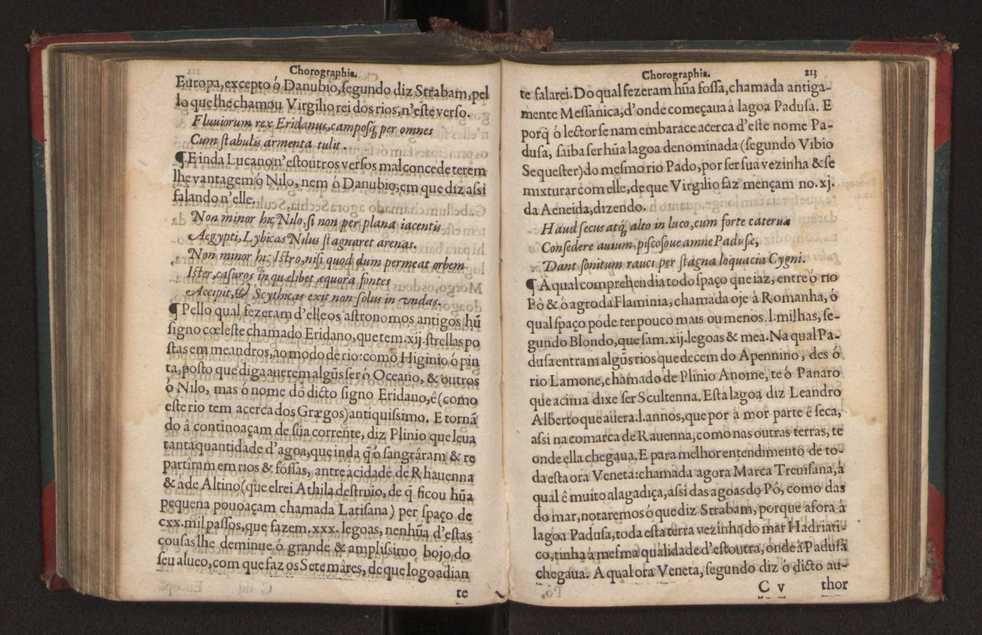 Chorographia.
Europa, excepto ó Danubio, segundo diz Strabam, pel
lo que lhe chamou Virgilio rei dos rios, n'este verso.
Fluuiorum rex Eridanus, camposq; per omnes
Cum stabulis armenta tulit.
¶ E inda Lucano n'estoutros versos mal concede terem
lhe vantagem ó Nilo, nem ó Danubio, em que diz assi
falando n'elle,
Non minor hic Nilo, si non per plana iacentis
Aegypti, Lybicas Nilus stagnaret arenas.
Non minor hic Istro, nisi quod dum permeat orbem
Ister, casuros in quælibet æquora fontes
Accipit, & Scythicas exit non solus in vndas.
¶ Pello qual fezeram d'elle os astronomos antigos hũ
signo cœleste chamado Eridano, que tem xij. strellas po
stas em meandros, ao modo de rio: como Higinio ó pin
ta, posto que diga auerem algũs ser ó Oceano, & outros
ó Nilo, mas ó nome dó dicto signo Eridano, é (como
este rio tem acerca dos Grægos) antiquissimo. E tornã
do á continoaçam de sũa corrente, diz Plinio que leua
tanta quantidade d'agoa, que inda q̃ ó sangráram & re
partiram em rios & fossas, antre a cidade de Rhauenna
& a de Altino (que elrei Athila destruio, de q̃ ficou hũa
pequena pouoaçam chamada Latisana) per spaço de
cxx. mil passos, que fazem. xxx. legoas, nenhũa d'estas
cousas lhe deminue ó grande & amplissimo bojo do
seu alueo, com que faz os Sete máres, de que logo adian
te
Chorographia.
213
te falarei. Do qual fezeram hũa fossa, chamada antiga-
mente Messanica; d'onde começaua á lagoa Padusa. E
porq̃ ó lector se nam embarace acerca d'este nome Pa-
dusa, saiba ser hũa lagoa denominada (segundo Vibio
Sequester) do mesmo rio Pado, por ser sua vezinha & se
mixturar com elle, de que Virgilio faz mençam no. xj.
da Aeneida, dizendo.
Haud secus atq; alto in luco, cum forte cateruæ
Consedere auium, piscosoue amne Padusæ,
Dant sonitum rauci per stagna loquacia Cygni.
¶ A qual comprehendia todo spaço que iaz, entre ó rio
Pó & ó agro da Flaminia, chamada oje á Romanha, ó
qual spaço póde ter pouco mais ou menos. l. milhas, se-
gundo Blondo, que sam. xij. legoas & mea. Na qual Pa-
dusa entram algũs rios que decem do Apennino, des ó
rio Lamone, chamado de Plinio Anome, te ó Panaro
que acima dixe ser Scultenna. Esta lagoa diz Leandro
Alberto que auera. l. annos, que por á mor parte é seca,
assi na comarca de Rauenna, como nas outras terras, te
onde ella chegaua. E para melhor entendimento de to-
da esta ora Veneta: chamada agora Marca Treuisana, á
qual é muito alagadiça, assi das agoas do Pó, como das
do mar, notaremos ó que diz Strabam, porque afora á
lagoa Padusa, toda esta terra vezinha do mar Hadriati-
co, tinha á mesma qualidade d'estoutra, onde á Padusa
chegaua. A qual ora Veneta, segundo diz ó dicto au-
C v
thor